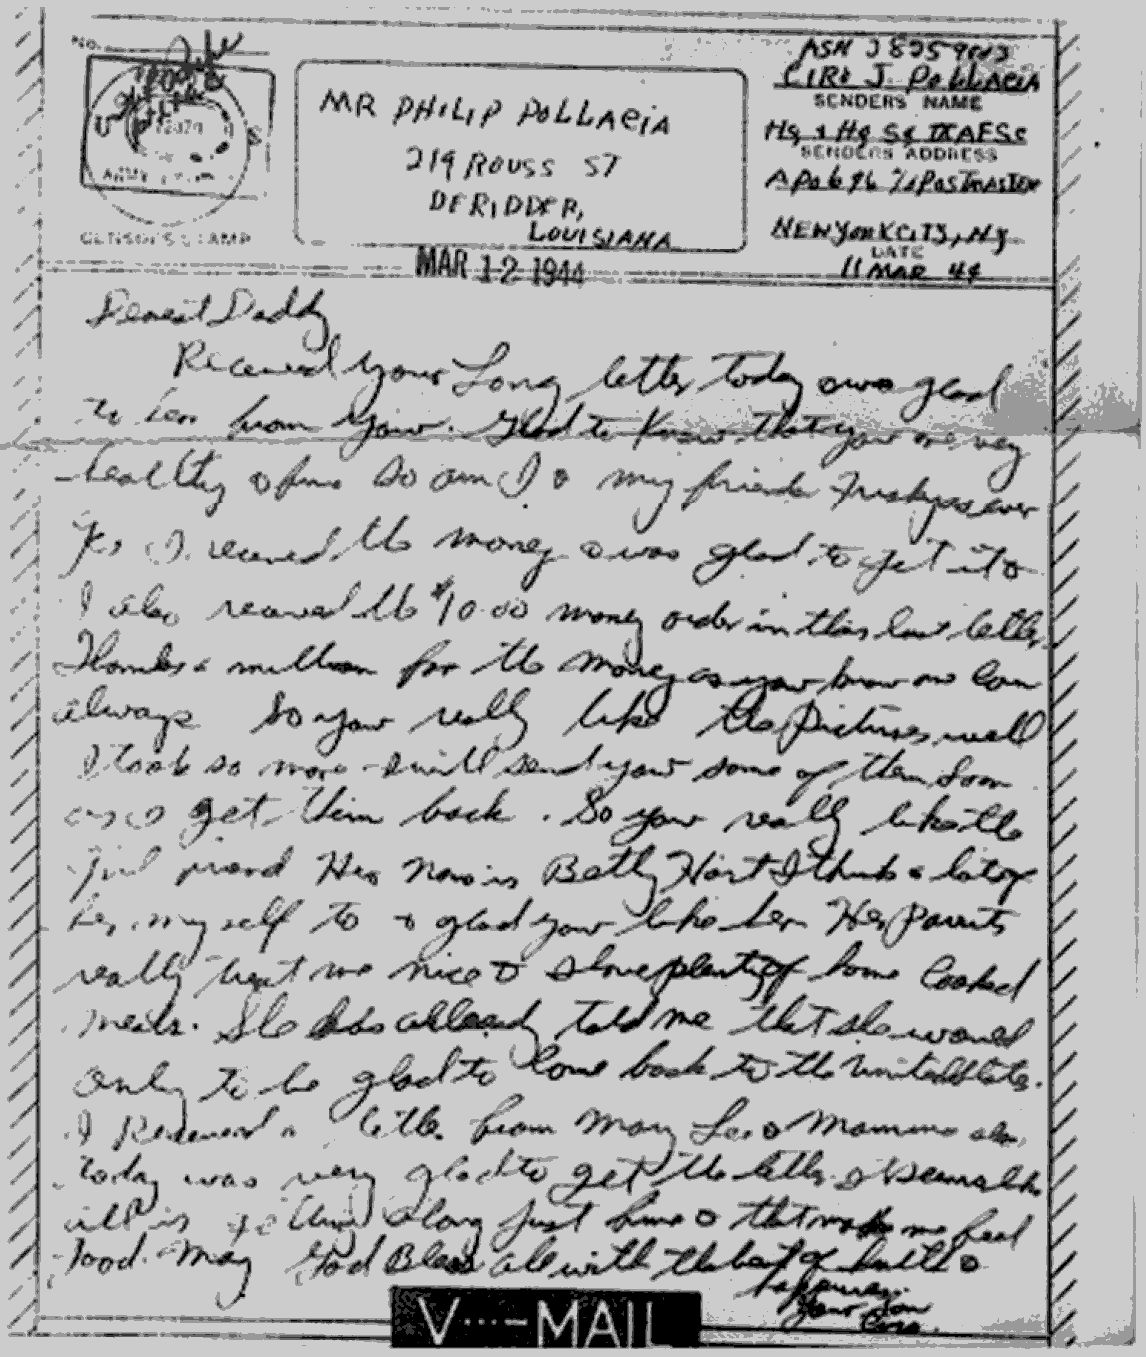 No.
MR PHILIP POLLACIA
219 ROUSS ST
DERIDDER,
LOUISIANA
CENSOR'S STAMP
ASN 38259013
CIRO J. POLLACIA
SENDERS NAME
Hq & Hq Sq IX AFSC
SENDERS ADDRESS
APO 696 % POSTMASTER
NEW YORK CITY, N.Y.
DATE
11 MAR 44
MAR 12 1944
Dearest Daddy
Received your Long letter today & was glad
to hear from your. Glad to Know that your are very
healthy & fine so am I & my friends Frisky as ever
Yes I received the money & was glad to get it &
I also received the $10.00 money order in this last letter
Thanks a million for the money as your know me love
always So your really like the pictures well
I took so more I will send your some of them soon
as I get them back. So your really like the
girl friend Her Name is Betty Hart I think a lot of
her my self to & glad your like her Her Parents
really treat me nice & I have plenty of home cooked
meals. She has allready told me that she would
only to be glad to come back to the United States.
I Received a letter from Mary Lee & Mamma also
today was very glad to get the letter &
all is getting along just fine & that makes me feel
good. May God Bless all with the best of health &
happiness.
Your Son
Ciro.
V···-MAIL